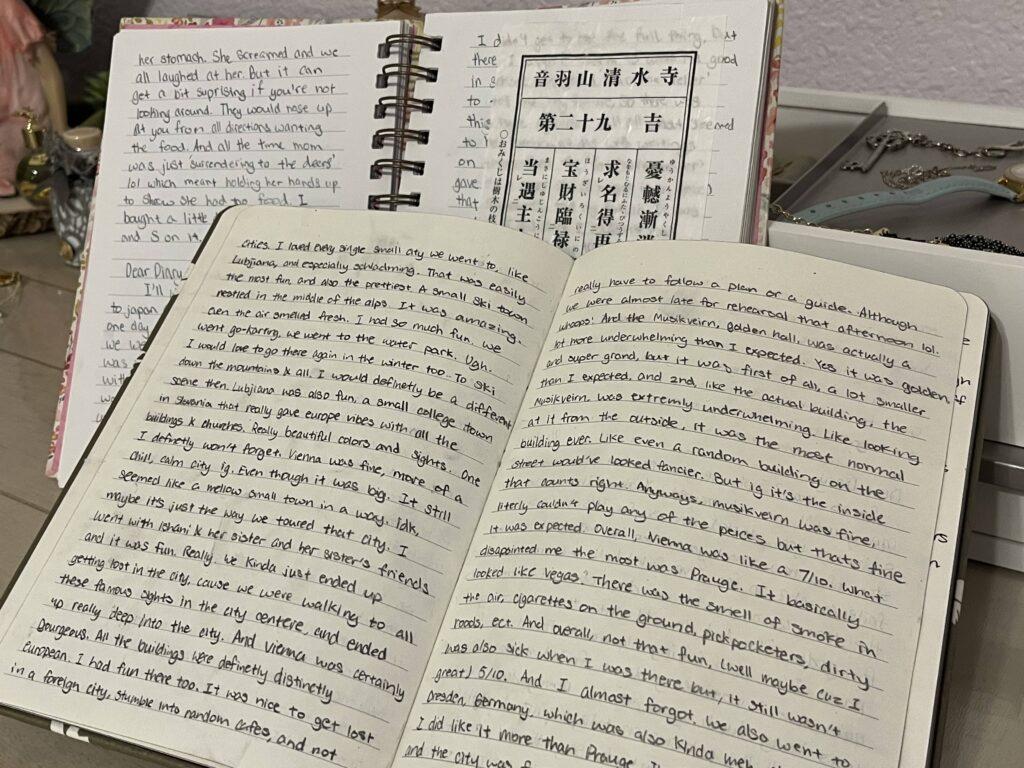 her stomach. She screamed and we
all laughed at her. But it can
get a bit suprising if you're not
looking around. They would nose up
At you from all directions wanting
the food. And all the time mom
was just 'surrendering to the deers'
lol which meant holding her hands up
to show she had no food. I
bought a little
and S on it.
Dear Diary
I'll
to japan
one day
we w
was
with
I didn't get to see the full thing. But
there
good
in s
to
this
to
on
gave
that
音羽山清水寺
第二十九 吉
○おみくじは樹木の枝
憂轗漸消
ゆうかんようやくし
求名得再
宝財臨禄
ほうざいろくにの
当遇主
まさにしゅじんこうに
cities. I loved every single small city we went to, like
Lubjiana, and especially schladming. That was easily
the most fun, and also the prettiest. A small ski town
nestled in the middle of the alps. It was amazing.
even the air smelled fresh. I had so much fun. We
went go-karting, we went to the water park. Ugh.
I would love to go there again in the winter too. To ski
down the mountains & all. I would definetly be a different
scene then. Lubjiana was also fun, a small college town
in Slovania that really gave europe vibes with all the
buildings & churches. Really beautiful colors and sights. One
I definetly won't forget. Vienna was fine, more of a
chill, calm city ig. Even though it was big. It still
seemed like a mellow small town in a way. Idk,
maybe it's just the way we toured that city. I
went with Ishani & her sister and her sister's friends
and it was fun. Really, we kinda just ended up
getting lost in the city, cause we were walking to all
these famous sights in the city centere, and ended
up really deep into the city. And Vienna was certainly
Bourgeous. All the buildings were definetly distinctly
european. I had fun there too. It was nice to get lost
in a foreign city, stumble into random cafes, and not
really have to follow a plan or a guide. Although
we were almost late for rehearsal that afternoon lol.
whoops! And the Musikveirn, golden hall, was actually a
lot more underwhelming than I expected. Yes it was golden,
and super grand, but it was first of all, a lot smaller
than I expected, and 2nd, like the actual building, the
Musikveirn was extremly underwhelming. Like looking
at it from the outside, it was the most normal
building ever. Like even a random building on the
street would've looked fancier. But ig it's the inside
that counts right. Anyways, musikveirn was fine,
literly couldn't play any of the peices but thats fine
it was expected. Overall, Vienna was like a 7/10. What
disapointed me the most was Prauge. It basically
looked like Vegas. There was the smell of smoke in
the air, cigarettes on the ground, pickpocketers, dirty
roads, ect. And overall, not that fun, (well maybe cuz I
was also sick when I was there but, it still wasn't
great) 5/10. And I almost forgot, we also went to
Dresden, Germany, which was also kinda meh
I did like it more than Prauge.
and the city was